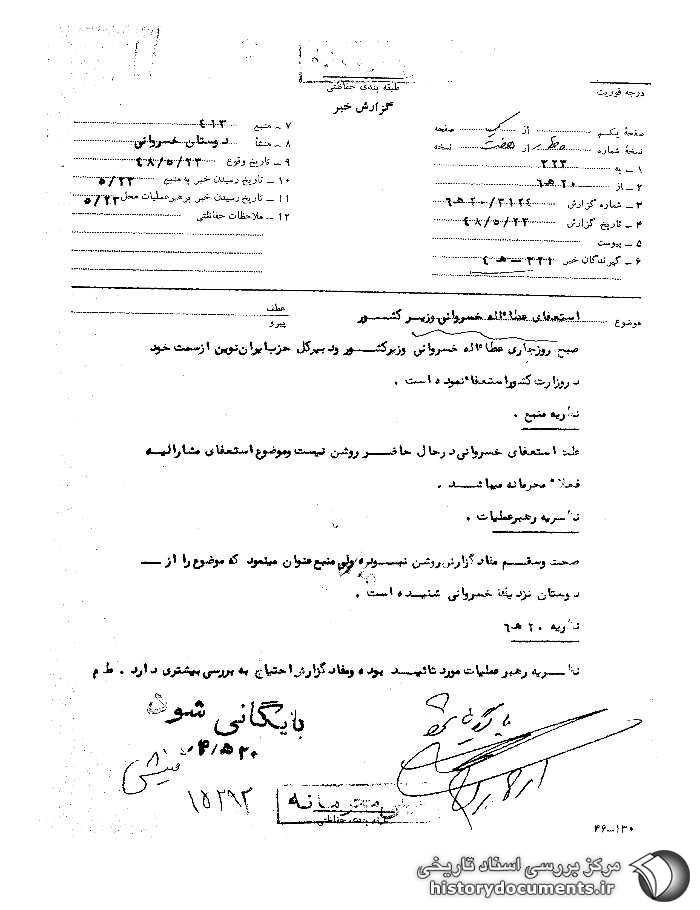 طبقه بندی حفاظتی
گزارش خبر
درجه فوریت
صفحهٔ یکم از یک صفحه
نسخهٔ شماره از هفت نسخه
۱ ـ به ۳۲۳
۲ ـ از ۲۰ هـ ۶
۳ ـ شماره گزارش ۲۰/۳۱۲۴ هـ ۶
۴ ـ تاریخ گزارش ۴۸/۵/۲۳
۵ ـ پیوست
۶ ـ گیرندگان خبر ۳۲۱ ـ هـ ۴
۷ ـ منبع ۴۱۳
۸ ـ منشأ دوستان خسروانی
۹ ـ تاریخ وقوع ۴۸/۵/۲۳
۱۰ ـ تاریخ رسیدن خبر به منبع ۵/۲۳
۱۱ ـ تاریخ رسیدن خبر برهبر عملیات محل ۵/۲۳
۱۲ ـ ملاحظات حفاظتی
موضوع استعفای عطاءاله خسروانی وزیر کشور
عطف
پیرو
صبح روز جاری عطاءاله خسروانی وزیر کشور و دبیر کل حزب ایران نوین از سمت خود
در وزارت کشور استعفاء نموده است .
نظریه منبع .
علت استعفای خسروانی در حال حاضر روشن نیست و موضوع استعفای مشارالیه
فعلاً محرمانه میباشد .
نظریه رهبر عملیات .
صحت و سقم مفاد گزارش روشن نبوده ولی منبع عنوان مینمود که موضوع را از
دوستان نزدیک خسروانی شنیده است .
نظریه ۲۰ هـ ۶
نظریه رهبر عملیات مورد تائید بوده و مفاد گزارش احتیاج به بررسی بیشتری دارد . ط م
بایگانی شود
بایگانی شود
۲۰ هـ ۴
۱۵۲۹۲
خیلی محرمانه
طبقه بندی حفاظتی
۴۶-۱۳۰
مرکز بررسی اسناد تاریخی
historydocuments.ir